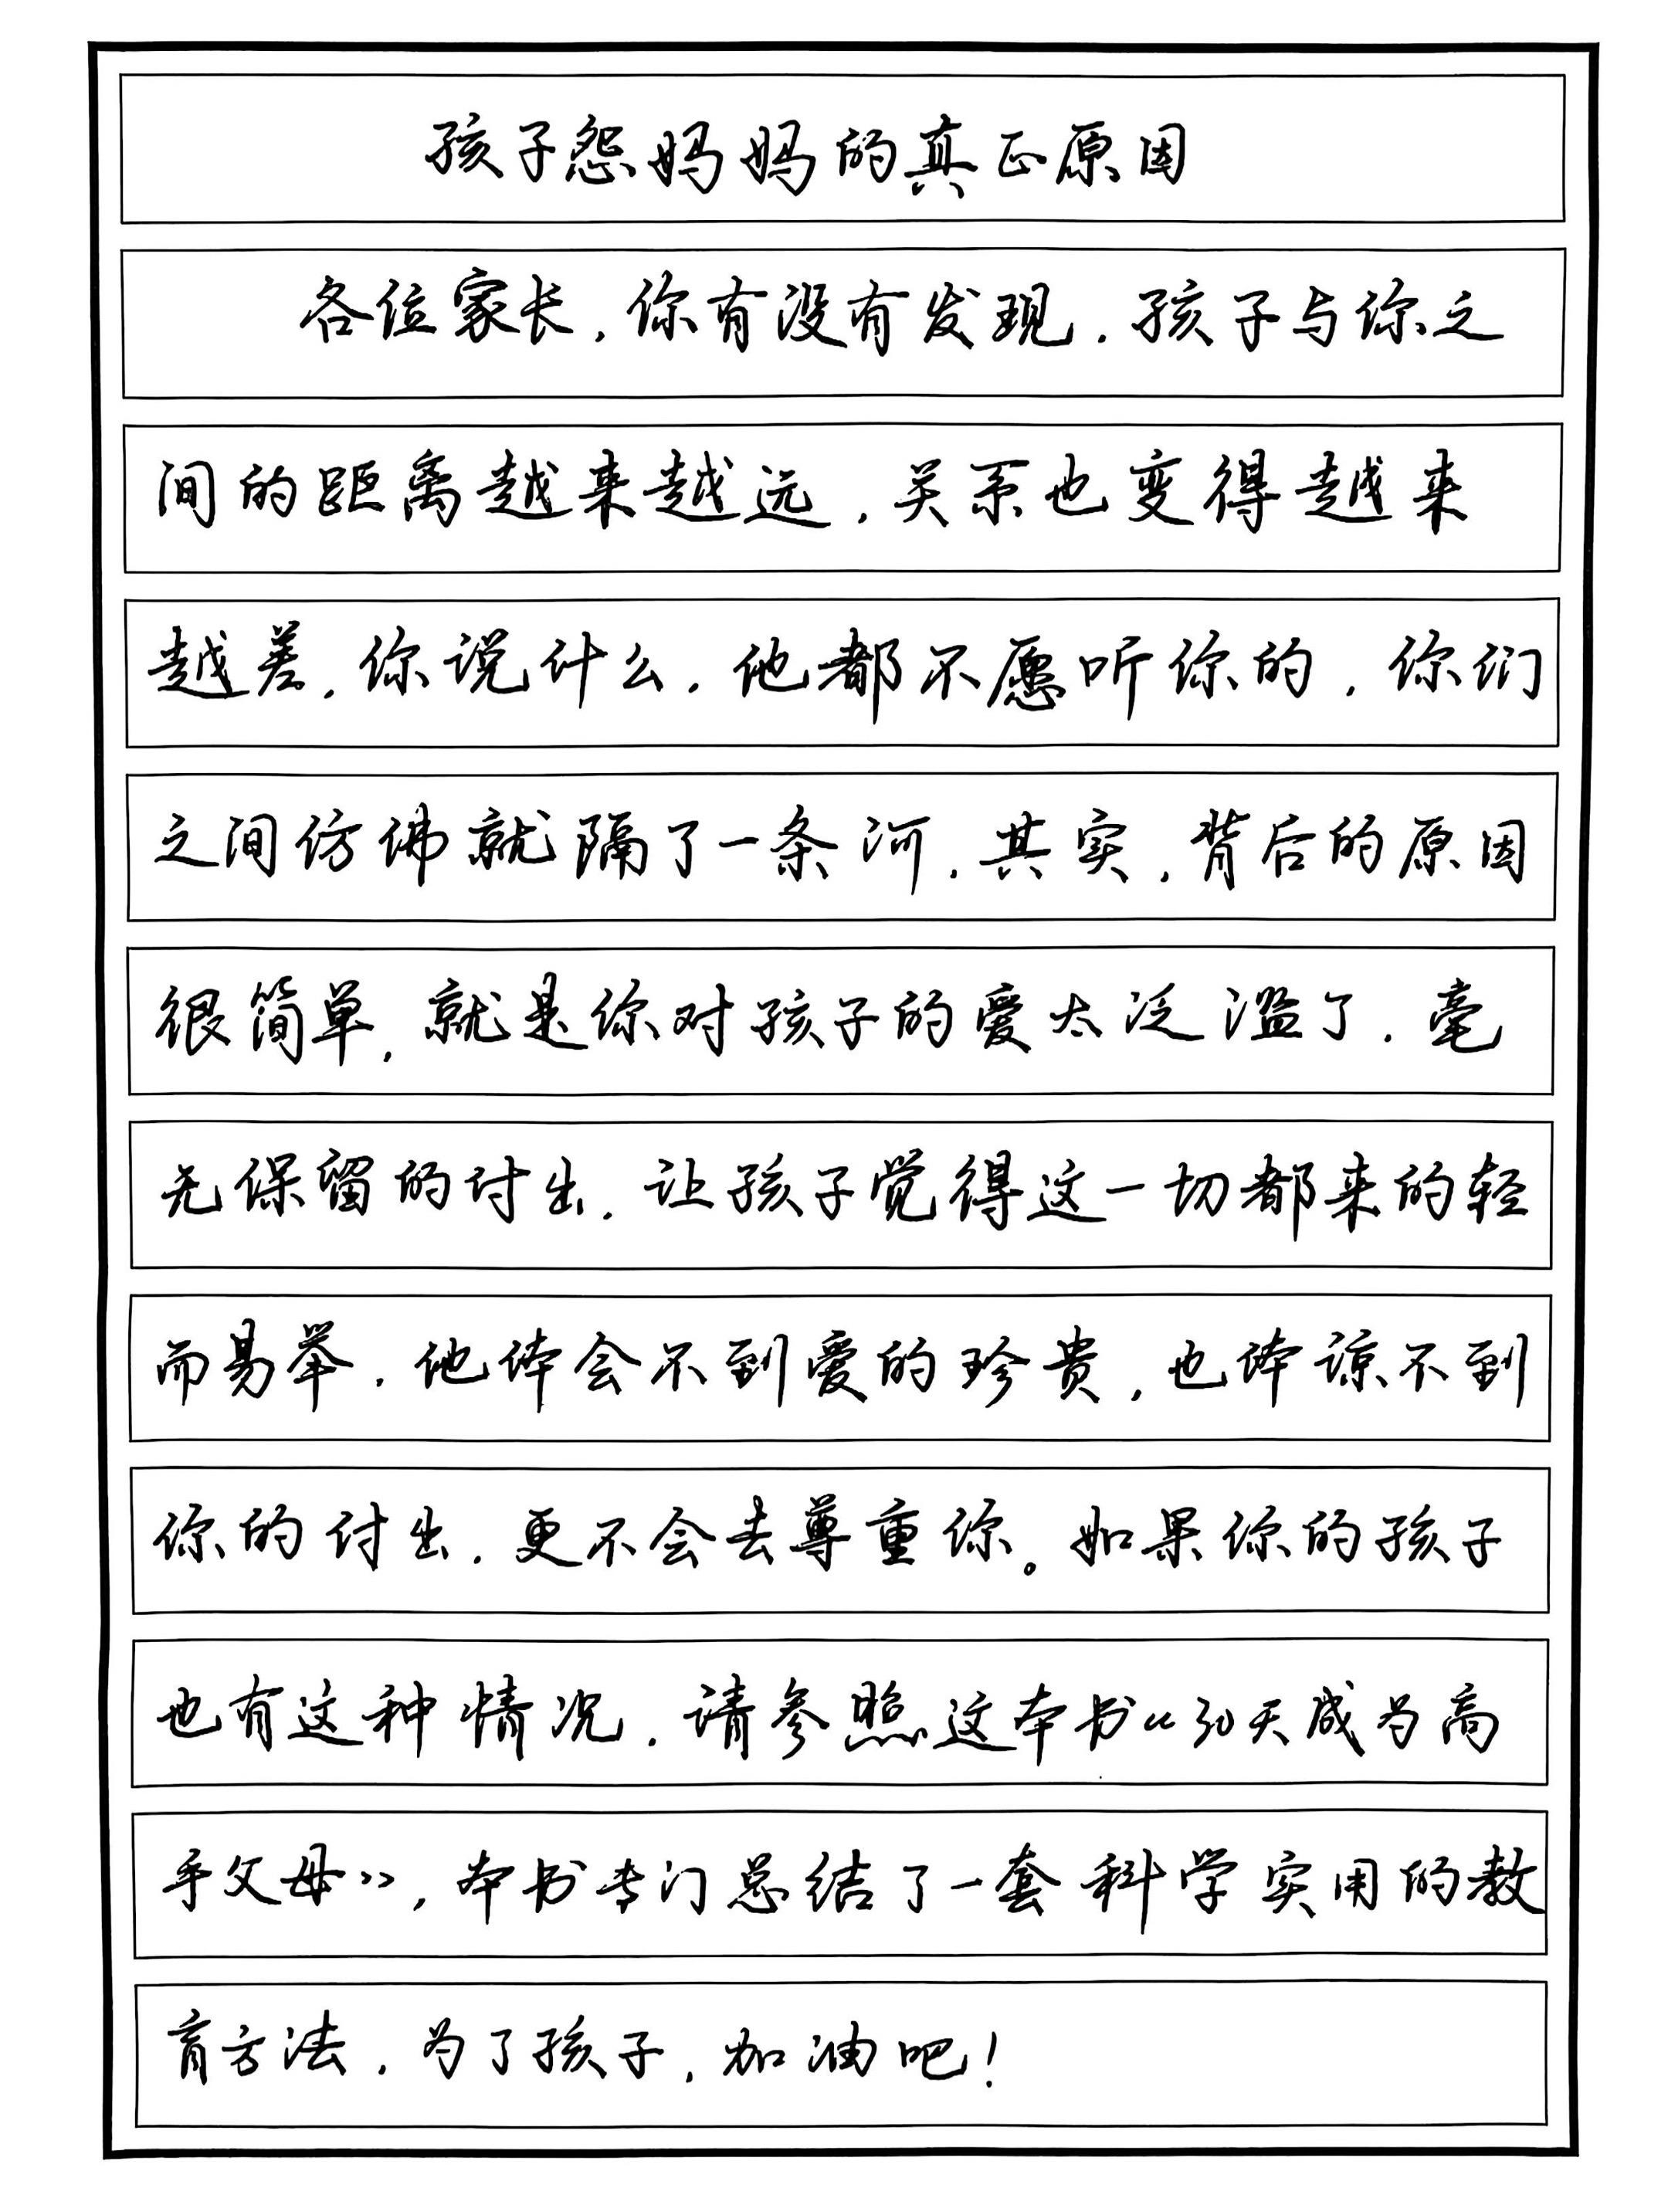 孩子怨妈妈的真正原因
各位家长，你有没有发现，孩子与你之
间的距离越来越远，关系也变得越来
越差，你说什么，他都不愿听你的，你们
之间仿佛就隔了一条河，其实，背后的原因
很简单，就是你对孩子的爱太泛滥了，毫
无保留的付出，让孩子觉得这一切都来的轻
而易举，他体会不到爱的珍贵，也体谅不到
你的付出，更不会去尊重你。如果你的孩子
也有这种情况，请参照这本书《30天成为高
手父母》，本书专门总结了一套科学实用的教
育方法，为了孩子，加油吧！